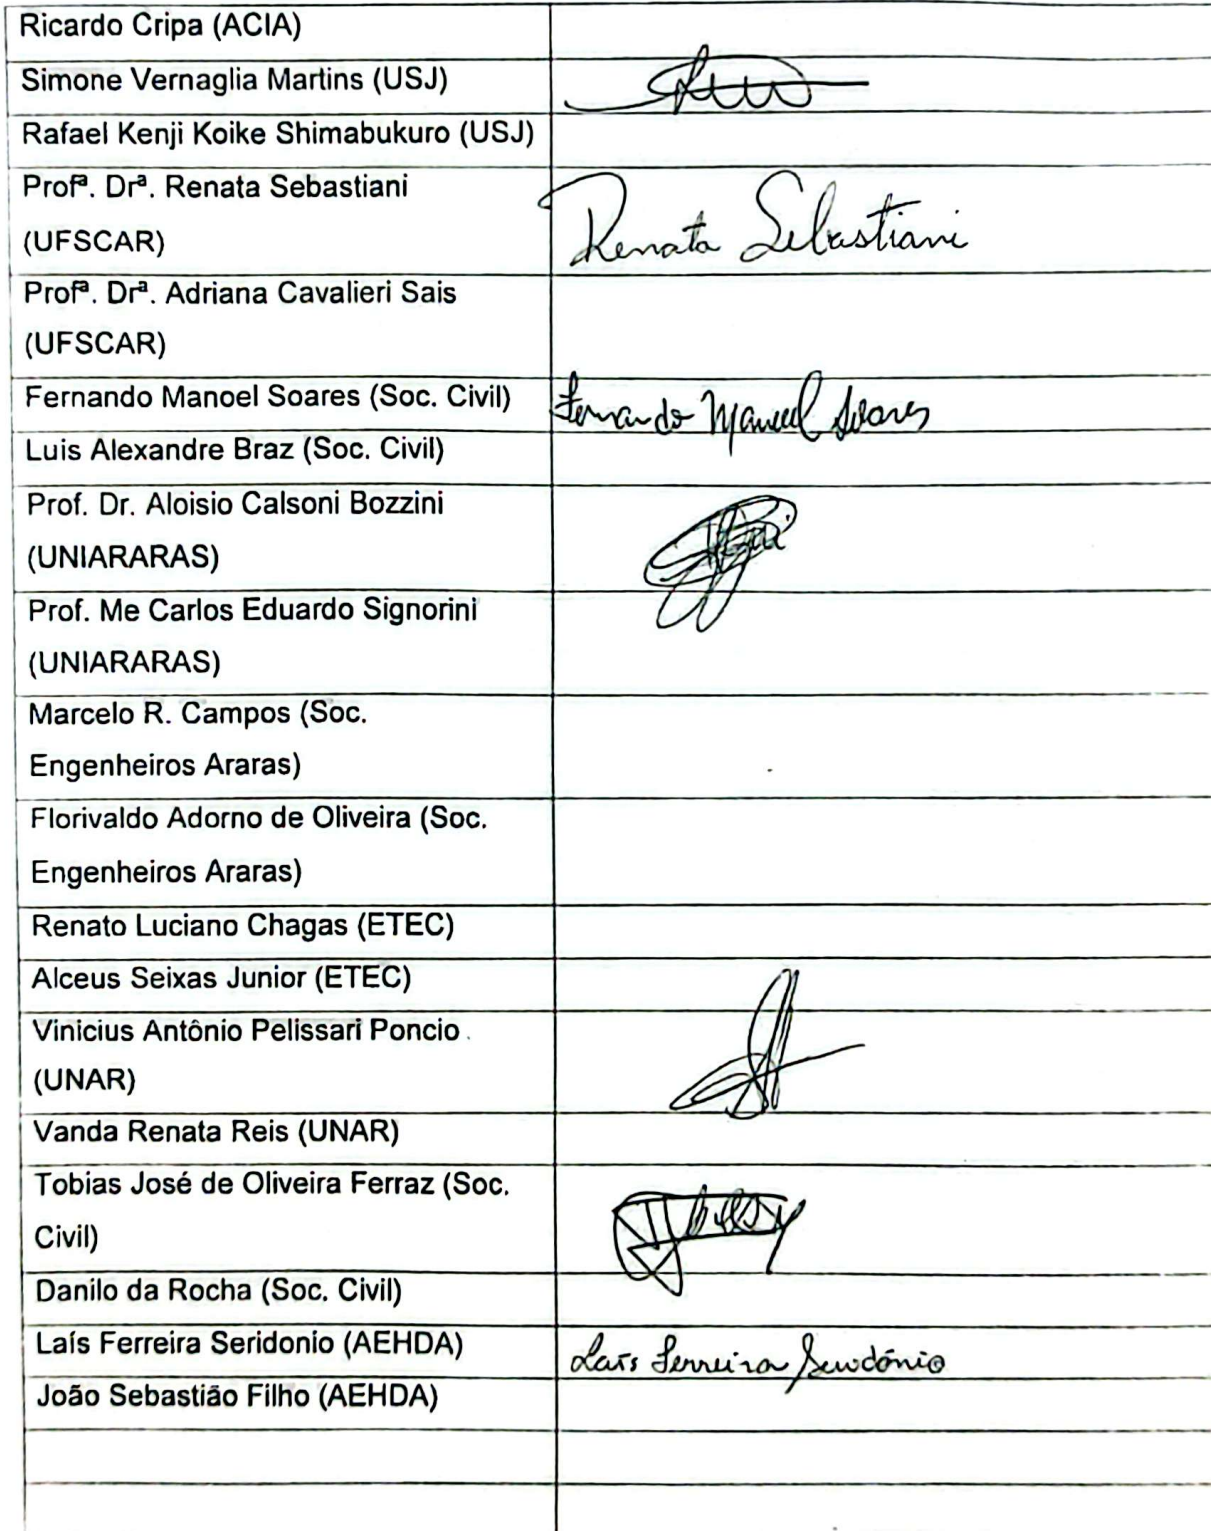 Ricardo Cripa (ACIA)
Simone Vernaglia Martins (USJ)
Rafael Kenji Koike Shimabukuro (USJ)
Profª. Drª. Renata Sebastiani
(UFSCAR)
Renata Sebastiani
Profª. Drª. Adriana Cavalieri Sais
(UFSCAR)
Fernando Manoel Soares (Soc. Civil)
Fernando Manoel Soares
Luis Alexandre Braz (Soc. Civil)
Prof. Dr. Aloisio Calsoni Bozzini
(UNIARARAS)
Prof. Me Carlos Eduardo Signorini
(UNIARARAS)
Marcelo R. Campos (Soc.
Engenheiros Araras)
Florivaldo Adorno de Oliveira (Soc.
Engenheiros Araras)
Renato Luciano Chagas (ETEC)
Alceus Seixas Junior (ETEC)
Vinicius Antônio Pelissari Poncio
(UNAR)
Vanda Renata Reis (UNAR)
Tobias José de Oliveira Ferraz (Soc.
Civil)
Danilo da Rocha (Soc. Civil)
Laís Ferreira Seridonio (AEHDA)
Laís Ferreira Seridônio
João Sebastião Filho (AEHDA)